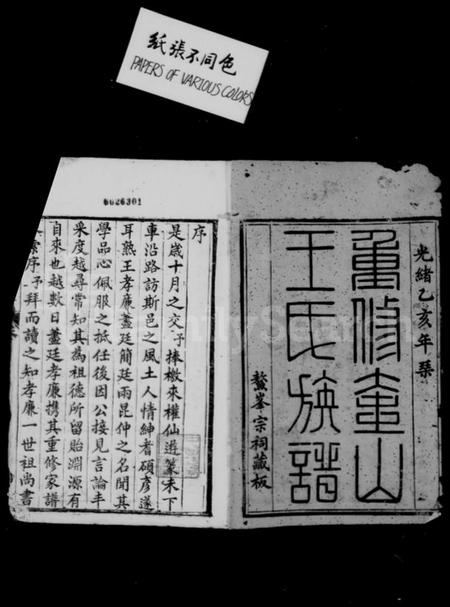 紙張不同色
PAPERS OF VARIOUS COLORS
6626301
光緒乙亥年琹
重修金山
王氏族譜
鰲峯宗祠藏板
序
是歲十月之交予捧檄來權仙遊篆未下
車沿路訪斯邑之風土人情紳耆碩彥遂
耳熟王孝廉藎廷簡廷雨昆仲之名聞其
學品心佩服之抵任後因公接見言論丰
采度越尋常知其為祖德所留貽淵源有
自來也越數日藎廷孝廉携其重修家譜
索序予拜而讀之知孝廉一世祖尚書